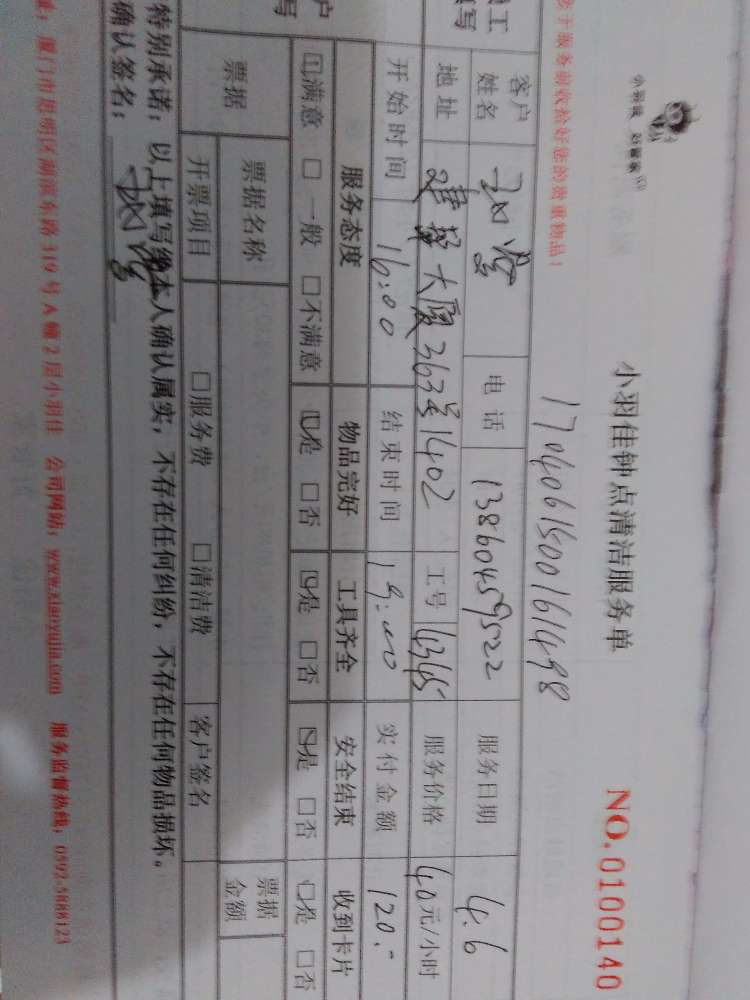 小羽佳 好管家
小羽佳钟点清洁服务单
NO.0100140
1704061500161498
于服务前收拾好您的贵重物品!
工
填写
客户姓名
电话 13860459522 服务日期 4.6
地址 建华大厦363号1402 工号 4345 服务价格 40元/小时
开始时间 16:00 结束时间 19:00 实付金额 120.-
户
写
服务态度 物品完好 工具齐全 安全结束 收到卡片
☑满意 □一般 □不满意 ☑是 □否 ☑是 □否 ☑是 □否 □是 □否
票据 票据名称 票据金额
开票项目 □服务费 □清洁费 客户签名
特别承诺:以上填写经本人确认属实,不存在任何纠纷,不存在任何物品损坏。
确认签名:
址:厦门市思明区湖滨东路319号A幢2层小羽佳 公司网站:www.xiaoyujia.com 服务监督热线:0592-5888123